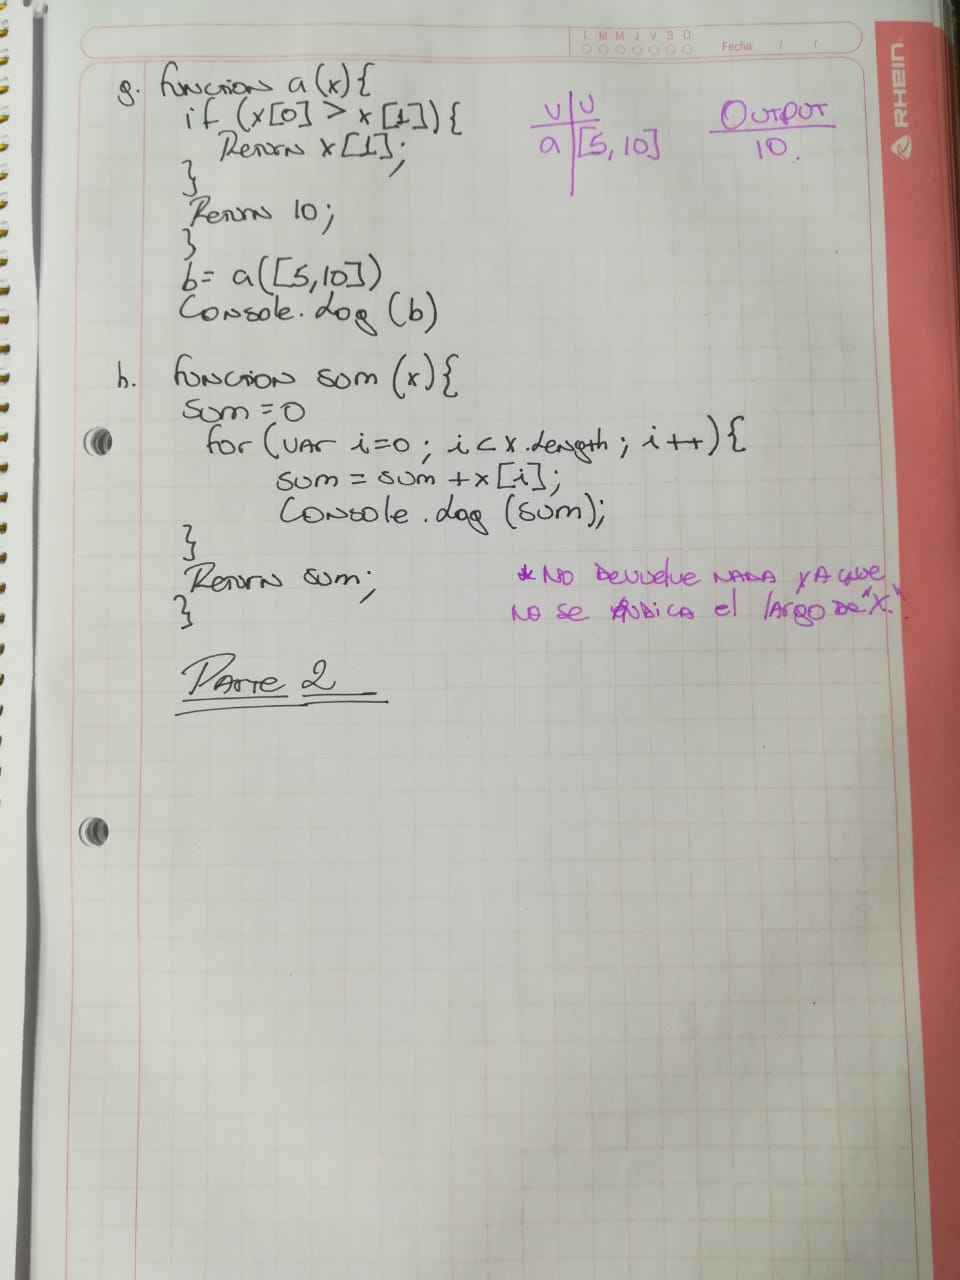 L M M J V S D
Fecha: / /
RHEIN
g. function a(x){
if (x[0] > x[1]){
Return x[1];
}
Return 10;
}
b= a([5,10])
Console.Log (b)
V | V
a | [5, 10]
OUTPUT
10.
h. function sum (x){
sum = 0
for (VAR i=0; i < x.Length; i++){
sum = sum + x[i];
Console.Log (sum);
}
Return sum;
}
* NO DEVUELVE NADA YA QUE
NO SE UBICA el LARGO DE "X".
PARTE 2